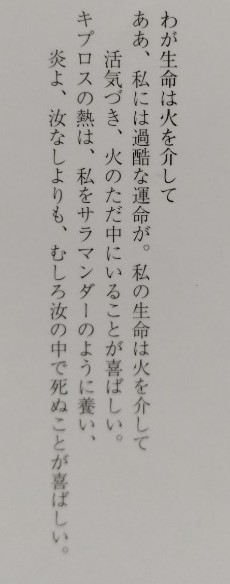 わが生命は火を介して
ああ、私には過酷な運命が。私の生命は火を介して
活気づき、火のただ中にいることが喜ばしい。
キプロスの熱は、私をサラマンダーのように養い、
炎よ、汝なしよりも、むしろ汝の中で死ぬことが喜ばしい。